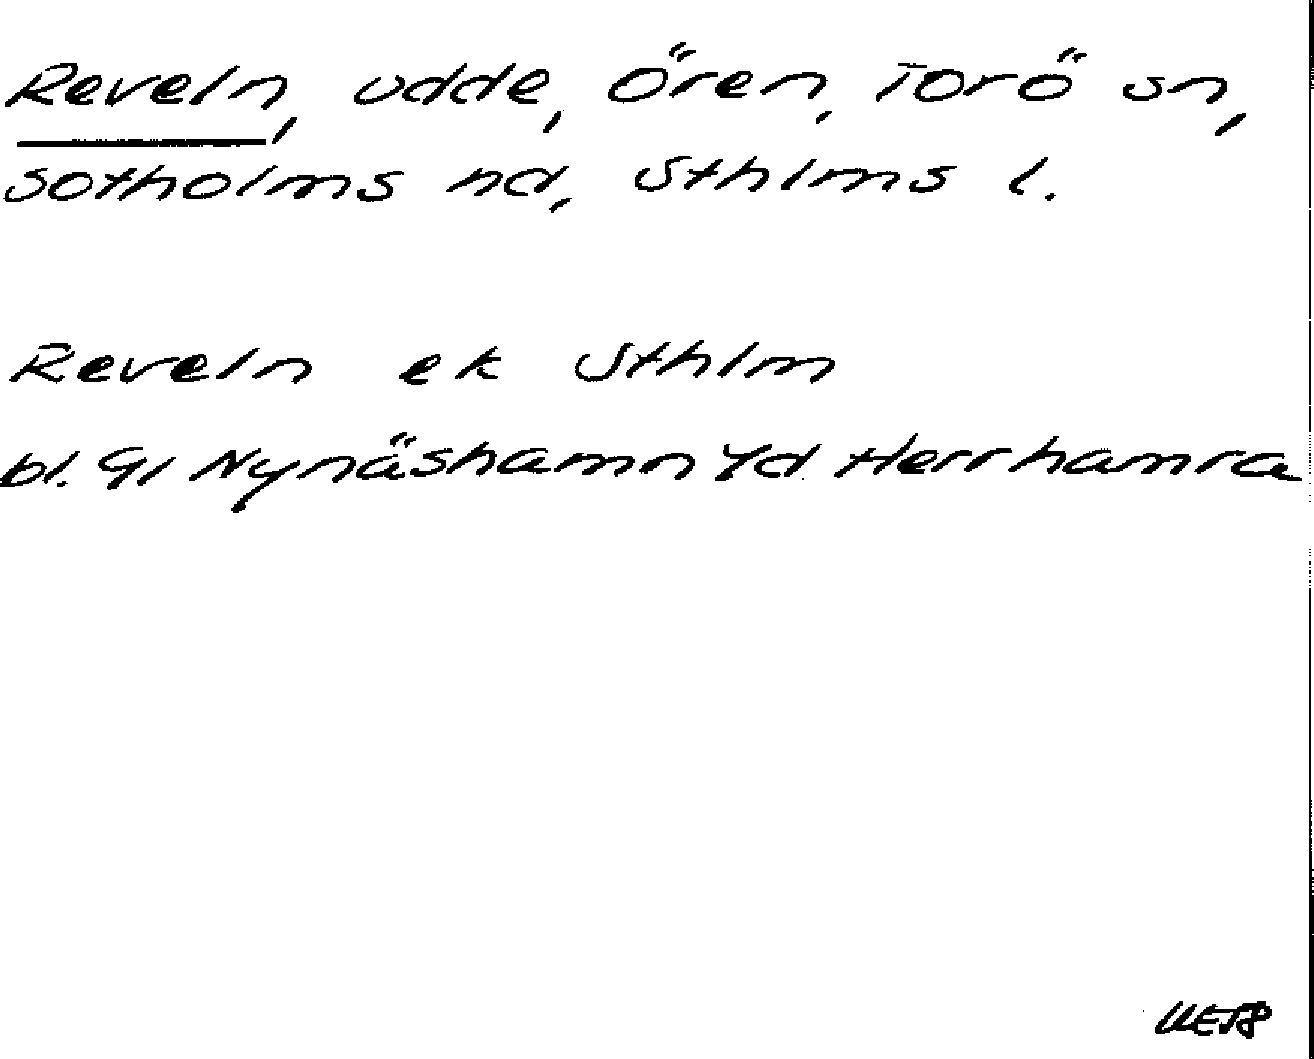 Reveln, udde, Ören, Torö sn,
Sotholms hd, Sthlms l.
Reveln ek Sthlm
bl. 91 Nynäshamn Yd. Herrhamra